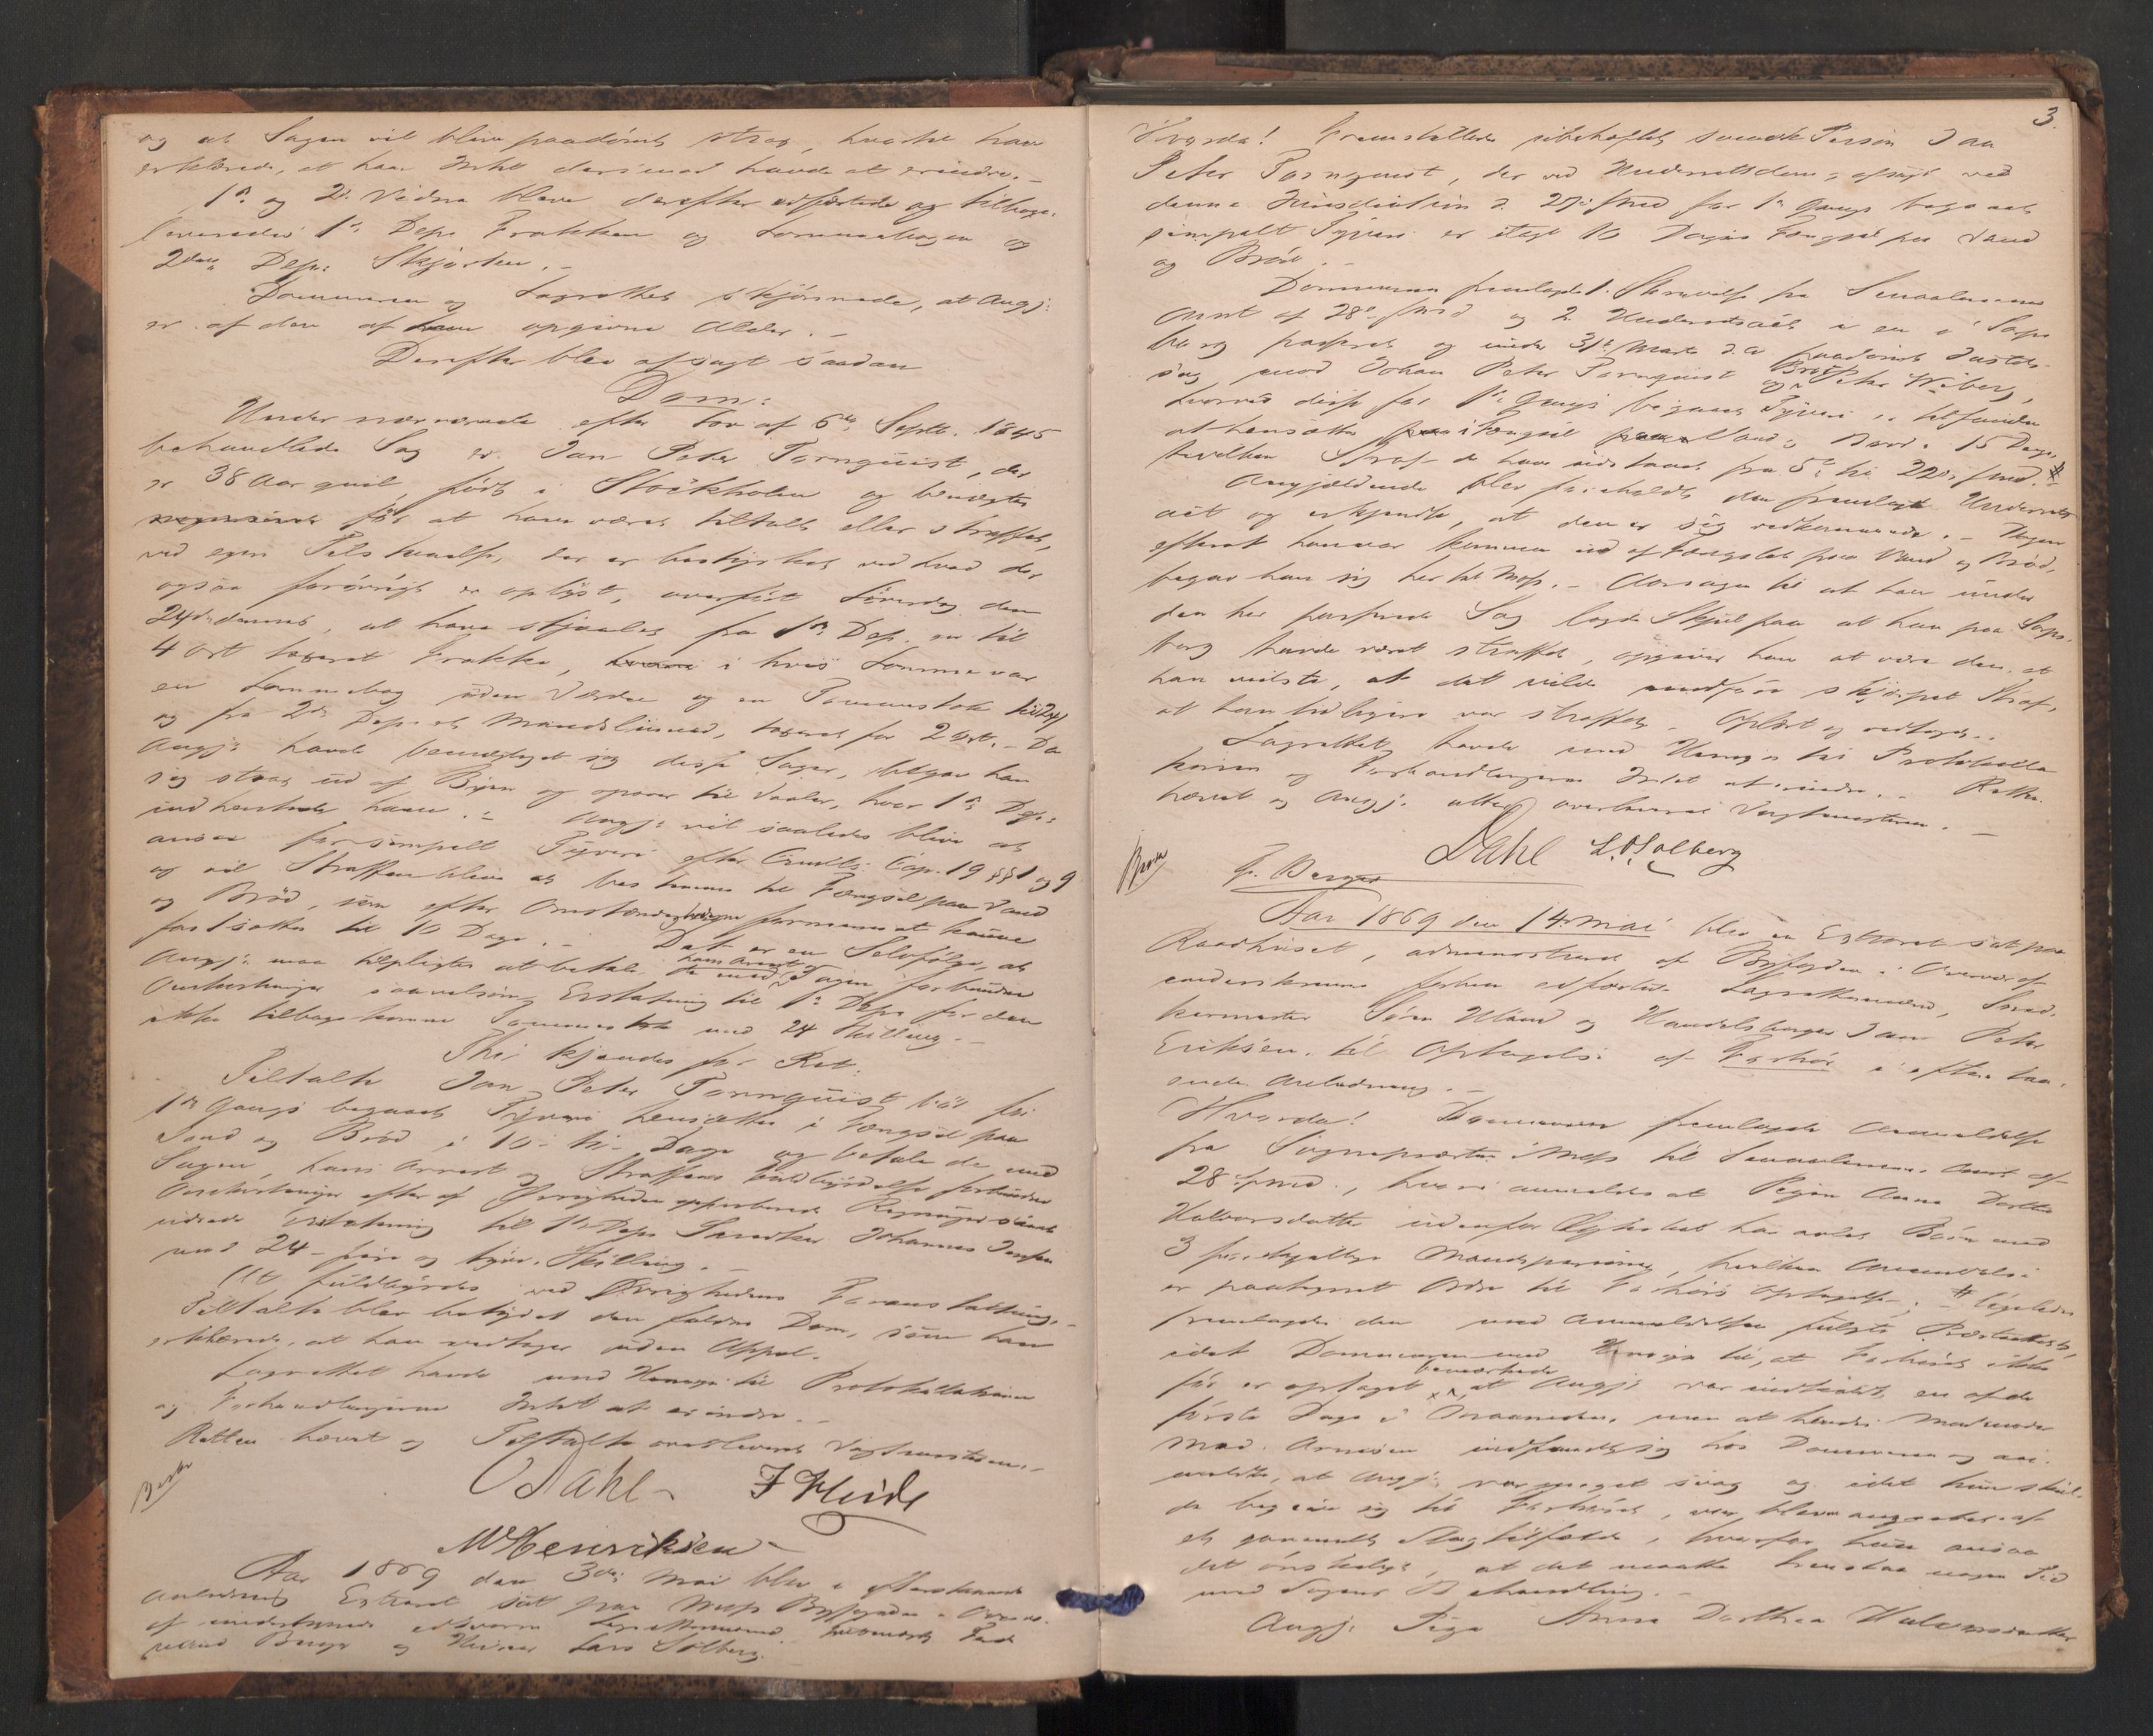 og at Sagen vil blive paadömt strax, hvortil han
erklærede, at han Intet derimod havde at erindre. –
1ste og 2det Vidne bleve derefter edfæstede og tilbage-
leveredes 1ste Dep. Frakken og Lommebogen og
2den Dep: Skjorten. –
Dommeren og Lagrettet skjönnede, at Angj:
er af den af ham opgivne Alder. –
Derefter blev afsagt saadan
Dom:
Under nærværende efter Lov af 6te Septb. 1845
behandlede Sag er Jan Peter Tornquist, der
er 38 Aar gml, födt i Stockholm og benægter
för at have været tiltalt eller straffet,
ved egen Tilstaaelse, der er bestyrket ved hvad der
ogsaa forövrigt er oplyst, overfört Löverdag den
24de dennes, at have stjaalet fra 1ste Dep. en til
4 Ort taxeret Frakke, i hvis Lomme var
en Lommebog uden Værdie og en Tommestok til 24 s
og fra 2den Dep. et Mandslinned, taxeret for 2 Ort. – Da
Angj: havde bemægtiget sig disse Sager, begav han
sig strax ud af Byen og opover til Vaaler, hvor 1ste Dep:
indhentede ham. – Angj: vil saaledes blive at
ansee for simpelt Tyveri efter Crmls Cap. 19 §§ 1 og 9
og vil Straffen blive at bestemme til Fængsel paa Vand
og Bröd, som efter Omstændighederne formenes at kunne
fastsættes til 10 Dage. – Det er en Selvfölge, at
Angj: maa tilpligtes at betale de med hans Arrest Sagen forbundne
Omkostninger saavelsom Erstatning til 1ste Dep. for den
ikke tilbagekomne Tommestok med 24 Skilling. –
Thi kjendes for Ret:
Tiltalte Jan Peter Tornquist bör for
1ste Gangs begaaet Tyveri hensættes i Fængsel paa
Vand og Bröd i 10 – ti – Dage og betale de med
Sagen, hans Arrest og Straffens Fuldbyrdelse forbundne
Omkostninger efter af Övrigheden approberet Regning samt
udrede Erstatning til 1ste Dep. Johannes Jensen
med 24 – fire og tyve – Skilling. –
At fuldbyrdes ved Övrighedens Foranstaltning. –
Tiltalte blev betydet den faldne Dom, som han
erklærede, at han vedtager uden Appel.
Lagrettet havde med Hensyn til Protokollationen
og Forhandlingerne Intet at erindre. –
Retten hævet og Tiltalte overleveret Vagtmesteren. –
Dahl – F Heide
M Henriksen –
Aar 1869 den 3die Mai blev i efterstaaende
Anledning Extraret sat paa Moss Byfogdens
af undertegnede edsvorne Lagrettesmænd,
Berger og Lars Solberg. –
3.
Hvorda! Fremstilledes svenske Person Jan
Peter Tornquist, der ved Underretsdom, afsagt ved
denne Jurisdiction d. 27de f. Md for 1ste Gangs begaaet
simpelt Tyveri er ilagt 10 Dages Fængsel paa Vand
og Bröd. –
Dommeren fremlagde 1. Skrivelse fra Smaalenenes
Amt af 28de f Md og 2. Underretsact i en i Sarps-
borg passeret og under 31te Marts d. A paadömt Justits-
sag mod Johan Peter Tornquist og Peter Wiberg,
hvorved disse for 1ste Gangs begaaet Tyveri ere tilfundne
at hensættes i Fængsel paa Vand og Bröd i 15 Dage,
hvilken Straf de have udstaaet fra 5te til 22de f Md. #
Angjældende blev foreholdt den fremlagte Underrets
act og erkjendte, at den er sig vedkommende. – Dagen
efterat han var kommen ud af Fængslet paa Vand og Bröd,
begav han sig her til Moss. – Aarsagen til at han under
den her passerede Sag lagde Skjul paa at han paa Sarps-
borg havde været straffet, opgiver han at være den, at
han vidste, at det vilde medföre skjærpet Straf,
at han tidligere var straffet. – Oplæst og vedtaget. –
Lagrettet havde med Hensyn til Protokolla-
tionen og Forhandlingerne Intet at erindre. – Retten
hævet og Angj. atter overleveret Vagtmesteren. –
Dahl L. O. Solberg
F. Berger
Aar 1869 den 14. Mai blev en Extraret sat paa
Raadhuset, administreret af Byfogden i Overvær af
undertegnede forhen edfæstede Lagrettesmænd,
Sören og Handelsborger Jan Peter
Eriksen, til Optagelse af Forhör i efterstaa-
ende Anledning. –
Hvorda! Dommeren fremlagde Anmeldelse
fra Sognepræsten i Moss til Smaalenenes Amt af
28de f Md., hvori anmeldes at Pigen Anna Dorthea
Halvorsdatter udenfor Ægteskab har avlet Börn med
3 forskjellige Mandspersoner, hvilken Anmeldelse
er paategnet Ordre til Forhörs Optagelse; – # ligeledes
fremlagdes den med Anmeldelsen fulgte
idet Dommeren med Hensyn til, at Forhöret ikke
för er optaget, bemærkede at Angj: var indkaldt en af de
förste Dage i Maaneden, men at hendes Madmoder
Mad. Arnesen indfandt sig hos Dommeren og an-
meldte, at Angj: var meget svag og idet hun skul-
de begive sig til Forhöret, var bleven angreben af
et gammelt Slagtilfælde, hvorfor hun ansaa
det önskeligt, at det maatte henstaa nogen Tid
med Sagens Behandling. –
Angj: Pige Anna Dorthea Halvorsdatter